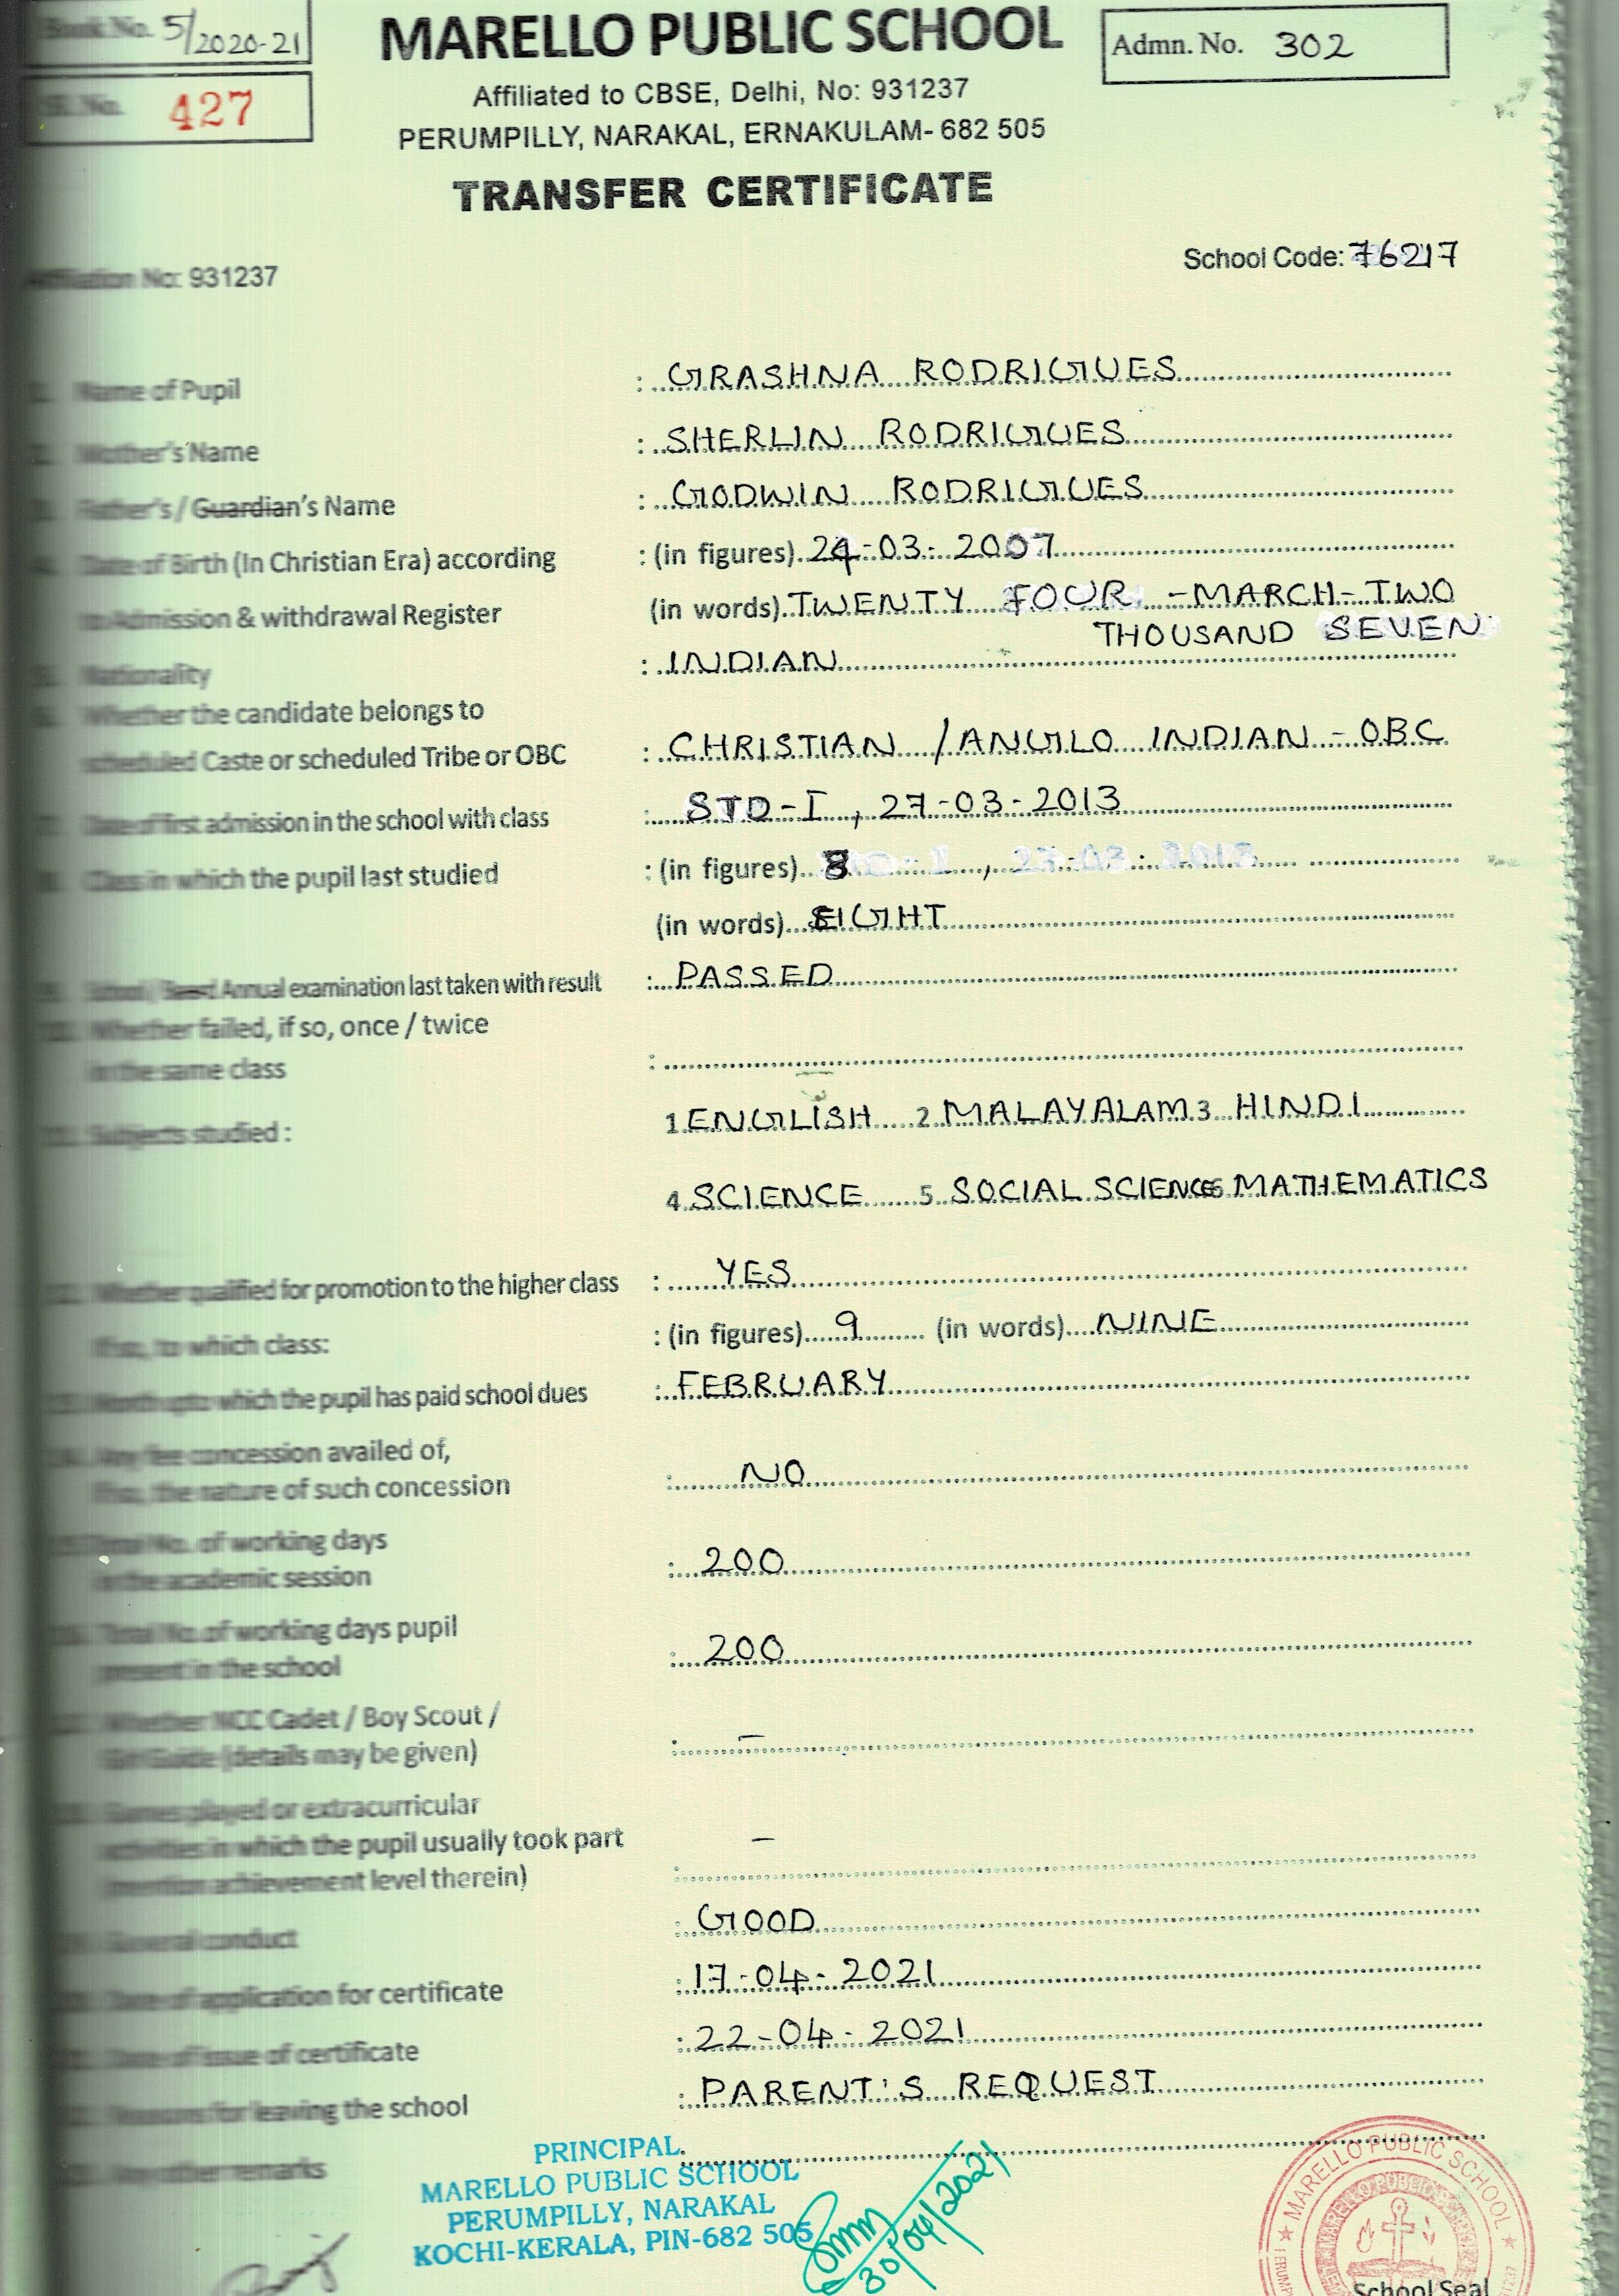 Book No. 5/2020-21
MARELLO PUBLIC SCHOOL
Admn. No. 302
Sl. No. 427
Affiliated to CBSE, Delhi, No: 931237
PERUMPILLY, NARAKAL, ERNAKULAM- 682 505
TRANSFER CERTIFICATE
School Code: 76217
Affiliation No: 931237
Name of Pupil : GRASHNA RODRIGUES
Mother's Name : SHERLIN RODRIGUES
Father's / Guardian's Name : GODWIN RODRIGUES
Date of Birth (In Christian Era) according : (in figures) 24-03-2007
to Admission & withdrawal Register (in words) TWENTY FOUR - MARCH - TWO
THOUSAND SEVEN
Nationality : INDIAN
Whether the candidate belongs to
scheduled Caste or scheduled Tribe or OBC : CHRISTIAN / ANGLO INDIAN - OBC
of first admission in the school with class : STD-I, 27-03-2013
Class in which the pupil last studied : (in figures) 8
(in words) EIGHT
Annual examination last taken with result : PASSED
Whether failed, if so, once / twice
in the same class :
Subjects studied : 1 ENGLISH 2 MALAYALAM 3 HINDI
4 SCIENCE 5 SOCIAL SCIENCE 6 MATHEMATICS
Whether qualified for promotion to the higher class : YES
If so, to which class: : (in figures) 9 (in words) NINE
Month upto which the pupil has paid school dues : FEBRUARY
Any fee concession availed of,
If so, the nature of such concession : NO
Total No. of working days
in the academic session : 200
Total No. of working days pupil
present in the school : 200
Whether NCC Cadet / Boy Scout /
Girl Guide (details may be given) : –
Games played or extracurricular
activities in which the pupil usually took part –
(mention achievement level therein)
General conduct : GOOD
Date of application for certificate : 17-04-2021
of issue of certificate : 22-04-2021
for leaving the school : PARENT'S REQUEST
other remarks
PRINCIPAL
MARELLO PUBLIC SCHOOL
PERUMPILLY, NARAKAL
KOCHI-KERALA, PIN-682 505
30/04/2021
MARELLO PUBLIC SCHOOL
School Seal